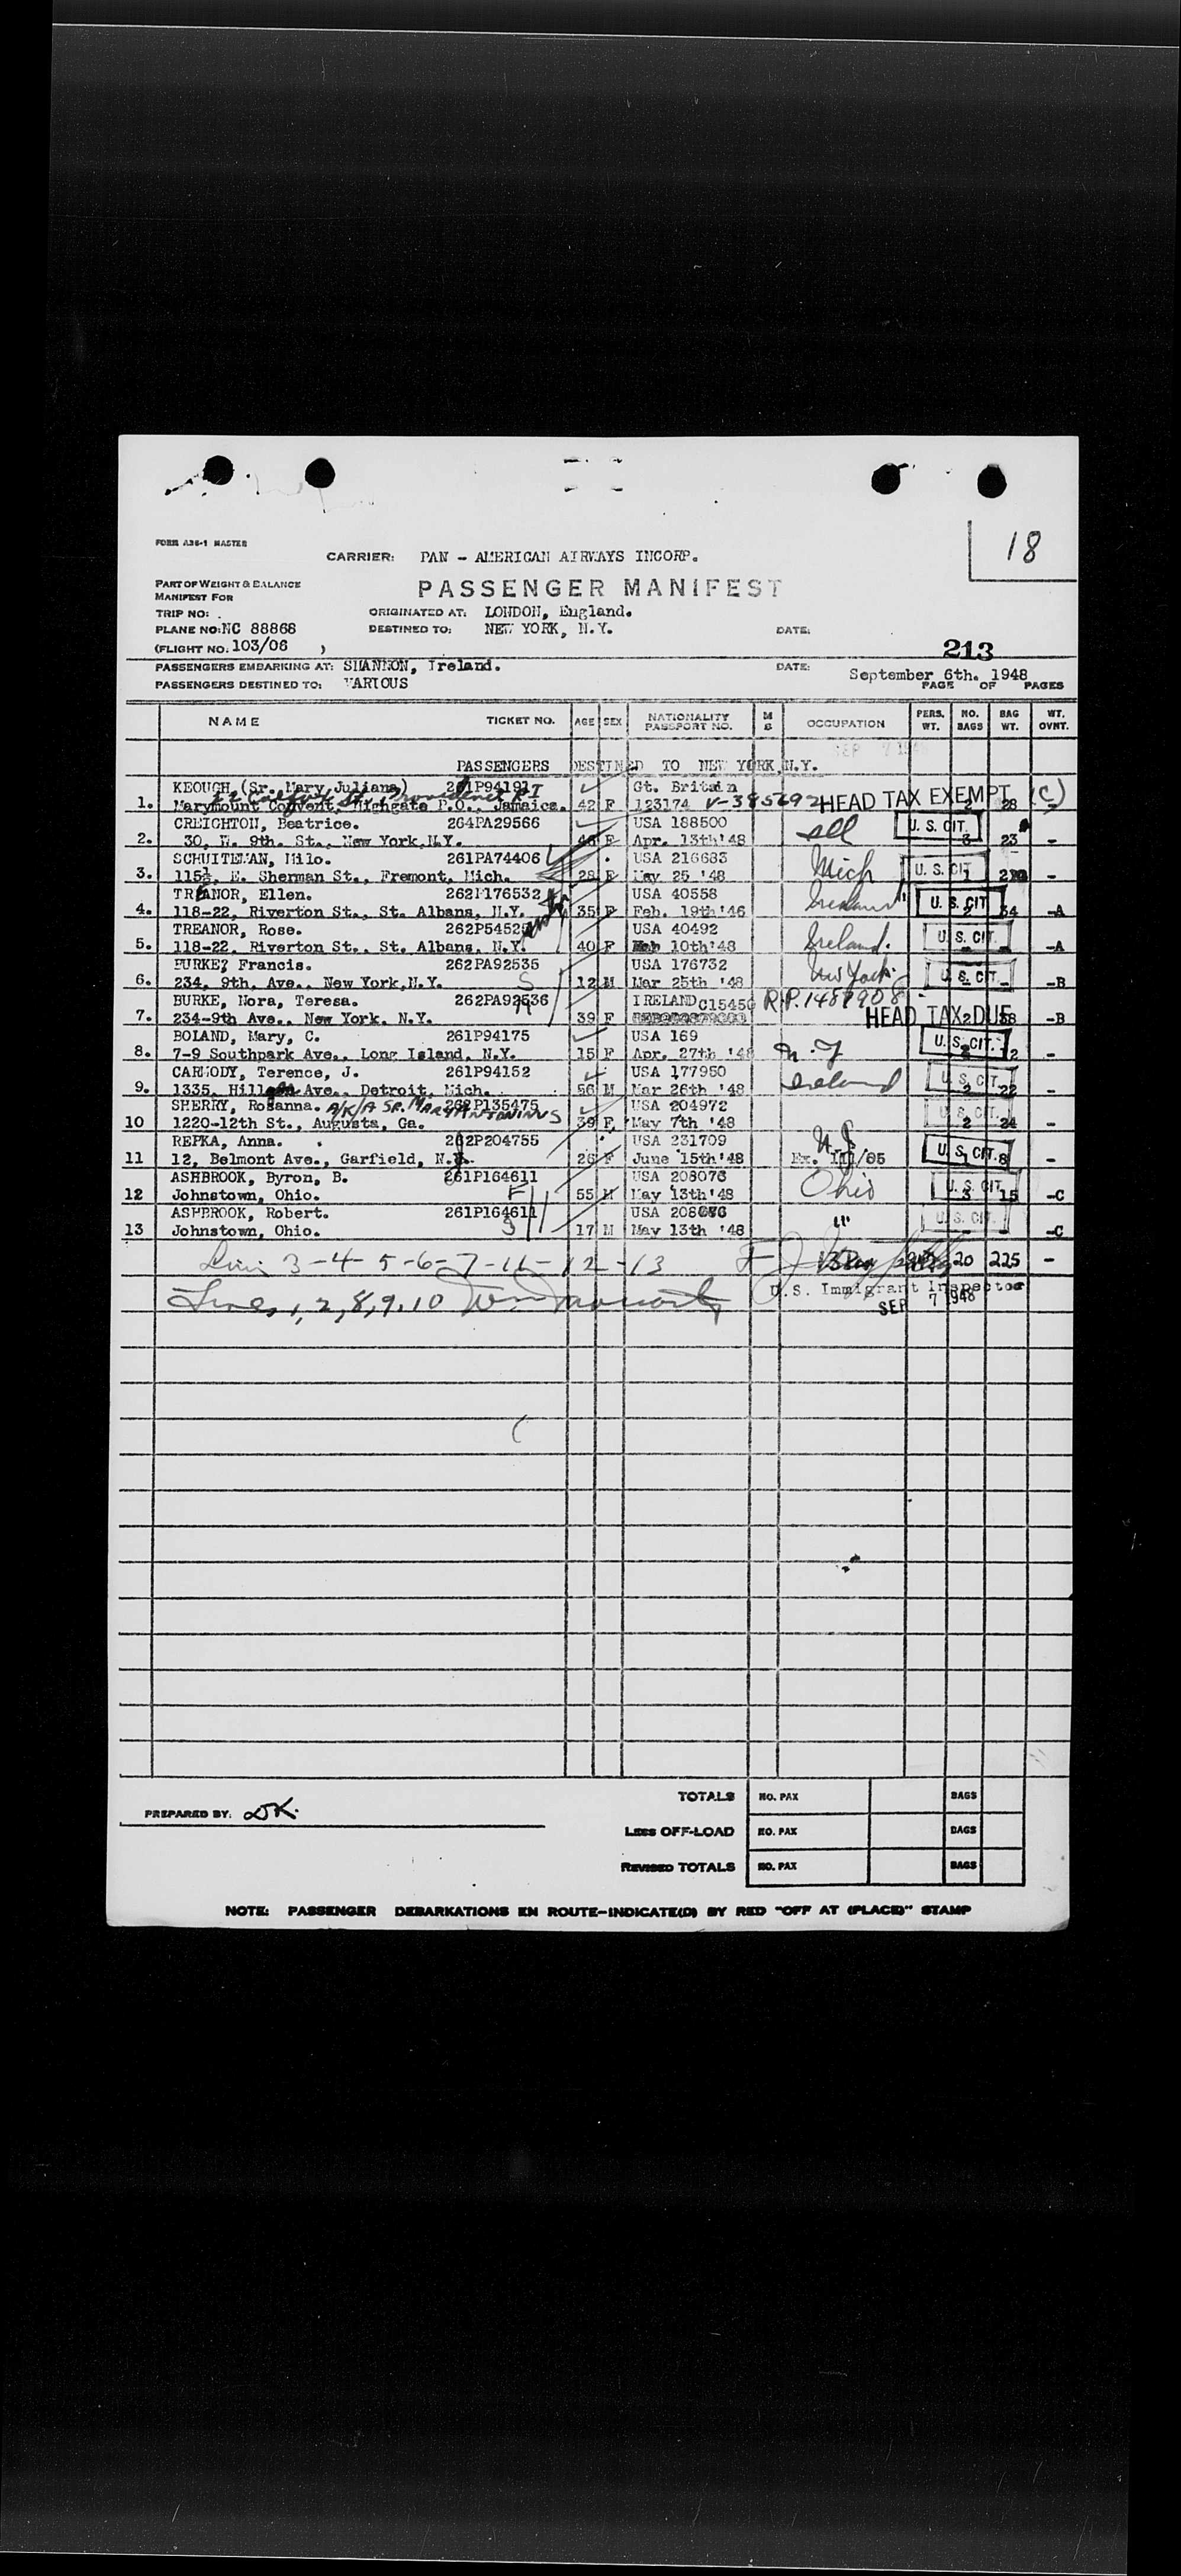 18
FORM A36-1 MASTER
CARRIER: PAN - AMERICAN AIRWAYS INCORP.
PART OF WEIGHT & BALANCE
MANIFEST FOR
PASSENGER MANIFEST
TRIP NO:
ORIGINATED AT: LONDON, England.
PLANE NO: NC 88868
DESTINED TO: NEW YORK, N.Y.
DATE:
(FLIGHT NO. 103/06 )
213
PASSENGERS EMBARKING AT: SHANNON, Ireland.
DATE: September 6th. 1948
PASSENGERS DESTINED TO: VARIOUS
PAGE OF PAGES
NAME TICKET NO. AGE SEX NATIONALITY PASSPORT NO. OCCUPATION PERS. WT. NO. BAGS BAG WT. WT. OVNT.
SEP 7 194
PASSENGERS DESTINED TO NEW YORK, N.Y.
KEOUGH, (Sr. Mary Juliana) 261P94191 Gt. Britain
1. Marymount Convent, Highgate P.O., Jamaica. 42 F 123174 V-385692 HEAD TAX EXEMPT 2 28 (C)
CREIGHTON, Beatrice. 264PA29566 USA 188500 U. S. CIT.
2. 30, W. 9th. St., New York, N.Y. 46 F Apr. 13th '48 3 23 -
SCHUITEMAN, Milo. 261PA74406 USA 216683 Mich U. S. CIT
3. 115½, E. Sherman St., Fremont, Mich. 28 May 25 '48 1 -
TREANOR, Ellen. 262P176532 USA 40558 Ireland U. S. CIT
4. 118-22, Riverton St., St. Albans, N.Y. 35 F Feb. 19th '46 2 34 -A
TREANOR, Rose. 262P54525 USA 40492 Ireland. U. S. CIT.
5. 118-22, Riverton St., St. Albans, N.Y. 40 F 10th '48 - - -A
BURKE, Francis. 262PA92535 USA 176732 New York U. S. CIT.
6. 234, 9th, Ave., New York, N.Y. S 12 M Mar 25th '48 - - -B
BURKE, Nora, Teresa. 262PA92536 IRELAND C15450 R.P. 1487908
7. 234-9th Ave., New York, N.Y. 39 F HEAD TAX DUE 2 -B
BOLAND, Mary, C. 261P94175 USA 169 U. S. CIT.
8. 7-9 Southpark Ave., Long Island, N.Y. 15 F Apr. 27th '48 N.Y 2 12 -
CARMODY, Terence, J. 261P94152 USA 177950 Ireland U. S. CIT.
9. 1335, Ave., Detroit, Mich. 56 M Mar 26th '48 2 22 -
SHERRY, Rosanna. A/K/A SR. MARY ANTONINUS 262P135475 USA 204972 U. S. CIT.
10 1220-12th St., Augusta, Ga. 39 F. May 7th '48 2 24 -
REPKA, Anna. 262P204755 USA 231709 N.J U. S. CIT.
11 12, Belmont Ave., Garfield, N.J. 26 F June 15th '48 Ex. /05 8 -
ASHBROOK, Byron, B. 261P164611 USA 208076 Ohio U. S. CIT.
12 Johnstown, Ohio. F 55 M May 13th '48 3 15 -C
ASHBROOK, Robert. 261P164611 USA 208076 U. S. CIT.
13 Johnstown, Ohio. S 17 M May 13th '48 " - - -C
3-4-5-6-7-11-12-13 20 225 -
Lines 1, 2, 8, 9, 10 U.S. Immigrant Inspector
SEP 7 1948
PREPARED BY: DK.
TOTALS NO. PAX BAGS
LESS OFF-LOAD NO. PAX BAGS
REVISED TOTALS NO. PAX BAGS
NOTE: PASSENGER DEBARKATIONS EN ROUTE-INDICATE(D) BY RED "OFF AT (PLACE)" STAMP